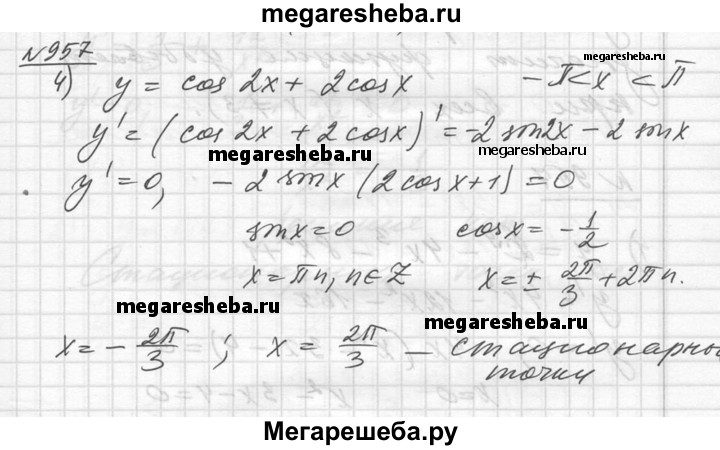 megaresheba.ru
№957
4) y = cos 2x + 2 cos x     -π < x < π
megaresheba.ru
y' = (cos 2x + 2 cos x)' = -2 sin 2x - 2 sin x
megaresheba.ru megaresheba.ru
y' = 0, -2 sin x (2 cos x + 1) = 0
sin x = 0     cos x = -1/2
x = πn, n ∈ Z     x = ± 2π/3 + 2πn.
megaresheba.ru megaresheba.ru
x = -2π/3 ; x = 2π/3 — стационарны
точки
Мегарешеба.ру